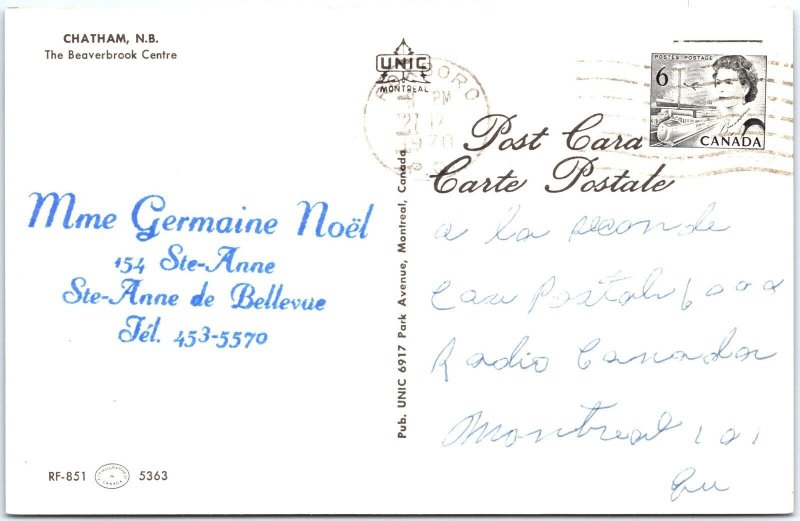 CHATHAM, N.B.
The Beaverbrook Centre
Mme Germaine Noël
154 Ste-Anne
Ste-Anne de Bellevue
Tél. 453-5570
RF-851 5363
Pub. UNIC 6917 Park Avenue, Montreal, Canada.
UNIC
MONTREAL
PM
1970
POSTES POSTAGE
6
CANADA
Post Card
Carte Postale
a la seconde
Case Postale 6000
Radio Canada
Montreal 101